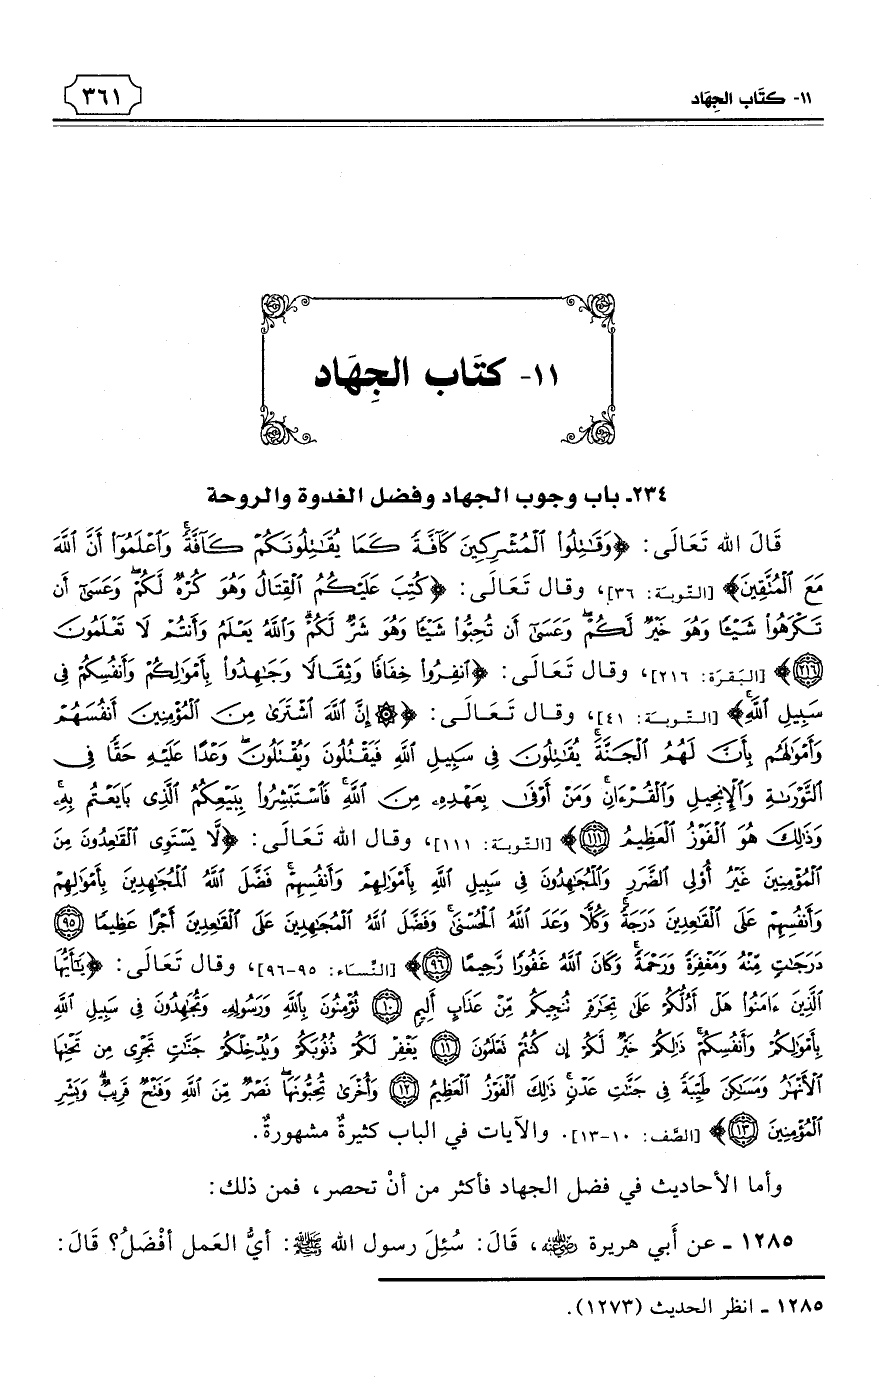 ١١- كتَاب الجِهَاد
٣٦١
١١- كتَاب الجِهَاد
٢٣٤ـ باب وجوب الجهاد وفضل الغدوة والروحة
قَالَ الله تَعَالَى: ﴿وَقَٰتِلُوا۟ ٱلْمُشْرِكِينَ كَآفَّةً كَمَا يُقَٰتِلُونَكُمْ كَآفَّةً ۚ وَٱعْلَمُوٓا۟ أَنَّ ٱللَّهَ
مَعَ ٱلْمُتَّقِينَ﴾ [التوبَة: ٣٦]، وقال تَعَالَى: ﴿كُتِبَ عَلَيْكُمُ ٱلْقِتَالُ وَهُوَ كُرْهٌ لَّكُمْ ۖ وَعَسَىٰٓ أَن
تَكْرَهُوا۟ شَيْـًٔا وَهُوَ خَيْرٌ لَّكُمْ ۖ وَعَسَىٰٓ أَن تُحِبُّوا۟ شَيْـًٔا وَهُوَ شَرٌّ لَّكُمْ ۗ وَٱللَّهُ يَعْلَمُ وَأَنتُمْ لَا تَعْلَمُونَ
٢١٦﴾ [البَقَرَة: ٢١٦]، وقال تَعَالَى: ﴿ٱنفِرُوا۟ خِفَافًا وَثِقَالًا وَجَٰهِدُوا۟ بِأَمْوَٰلِكُمْ وَأَنفُسِكُمْ فِى
سَبِيلِ ٱللَّهِ ۚ﴾ [التوبَة: ٤١]، وقال تَعَالَى: ﴿۞ إِنَّ ٱللَّهَ ٱشْتَرَىٰ مِنَ ٱلْمُؤْمِنِينَ أَنفُسَهُمْ
وَأَمْوَٰلَهُم بِأَنَّ لَهُمُ ٱلْجَنَّةَ ۚ يُقَٰتِلُونَ فِى سَبِيلِ ٱللَّهِ فَيَقْتُلُونَ وَيُقْتَلُونَ ۖ وَعْدًا عَلَيْهِ حَقًّا فِى
ٱلتَّوْرَىٰةِ وَٱلْإِنجِيلِ وَٱلْقُرْءَانِ ۚ وَمَنْ أَوْفَىٰ بِعَهْدِهِۦ مِنَ ٱللَّهِ ۚ فَٱسْتَبْشِرُوا۟ بِبَيْعِكُمُ ٱلَّذِى بَايَعْتُم بِهِۦ ۚ
وَذَٰلِكَ هُوَ ٱلْفَوْزُ ٱلْعَظِيمُ ١١١﴾ [التّوبَة: ١١١]، وقال الله تَعَالَى: ﴿لَّا يَسْتَوِى ٱلْقَٰعِدُونَ مِنَ
ٱلْمُؤْمِنِينَ غَيْرُ أُو۟لِى ٱلضَّرَرِ وَٱلْمُجَٰهِدُونَ فِى سَبِيلِ ٱللَّهِ بِأَمْوَٰلِهِمْ وَأَنفُسِهِمْ ۚ فَضَّلَ ٱللَّهُ ٱلْمُجَٰهِدِينَ بِأَمْوَٰلِهِمْ
وَأَنفُسِهِمْ عَلَى ٱلْقَٰعِدِينَ دَرَجَةً ۚ وَكُلًّا وَعَدَ ٱللَّهُ ٱلْحُسْنَىٰ ۚ وَفَضَّلَ ٱللَّهُ ٱلْمُجَٰهِدِينَ عَلَى ٱلْقَٰعِدِينَ أَجْرًا عَظِيمًا ٩٥
دَرَجَٰتٍ مِّنْهُ وَمَغْفِرَةً وَرَحْمَةً ۚ وَكَانَ ٱللَّهُ غَفُورًا رَّحِيمًا ٩٦﴾ [النِّسَاء: ٩٥-٩٦]، وقال تَعَالَى: ﴿يَٰٓأَيُّهَا
ٱلَّذِينَ ءَامَنُوا۟ هَلْ أَدُلُّكُمْ عَلَىٰ تِجَٰرَةٍ تُنجِيكُم مِّنْ عَذَابٍ أَلِيمٍ ١٠ تُؤْمِنُونَ بِٱللَّهِ وَرَسُولِهِۦ وَتُجَٰهِدُونَ فِى سَبِيلِ ٱللَّهِ
بِأَمْوَٰلِكُمْ وَأَنفُسِكُمْ ۚ ذَٰلِكُمْ خَيْرٌ لَّكُمْ إِن كُنتُمْ تَعْلَمُونَ ١١ يَغْفِرْ لَكُمْ ذُنُوبَكُمْ وَيُدْخِلْكُمْ جَنَّٰتٍ تَجْرِى مِن تَحْتِهَا
ٱلْأَنْهَٰرُ وَمَسَٰكِنَ طَيِّبَةً فِى جَنَّٰتِ عَدْنٍ ۚ ذَٰلِكَ ٱلْفَوْزُ ٱلْعَظِيمُ ١٢ وَأُخْرَىٰ تُحِبُّونَهَا ۖ نَصْرٌ مِّنَ ٱللَّهِ وَفَتْحٌ قَرِيبٌ ۗ وَبَشِّرِ
ٱلْمُؤْمِنِينَ ١٣﴾ [الصَّف: ١٠-١٣]. والآيات في الباب كثيرةٌ مشهورةٌ.
وأما الأحاديث في فضل الجهاد فأكثر من أنْ تحصر، فمن ذلك:
١٢٨٥ ـ عن أَبي هريرة رضي الله عنه، قَالَ: سُئِلَ رسول الله ﷺ: أيُّ العَمل أفْضَلُ؟ قَالَ:
١٢٨٥ ـ انظر الحديث (١٢٧٣).